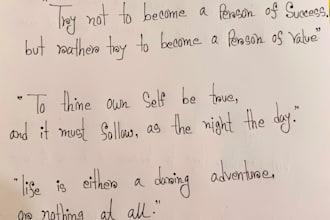 "Try not to become a Person of Success,
but rather try to become a Person of Value"
"To thine own Self be true,
and it must follow, as the night the day."
"life is either a daring adventure,
or nothing at all."